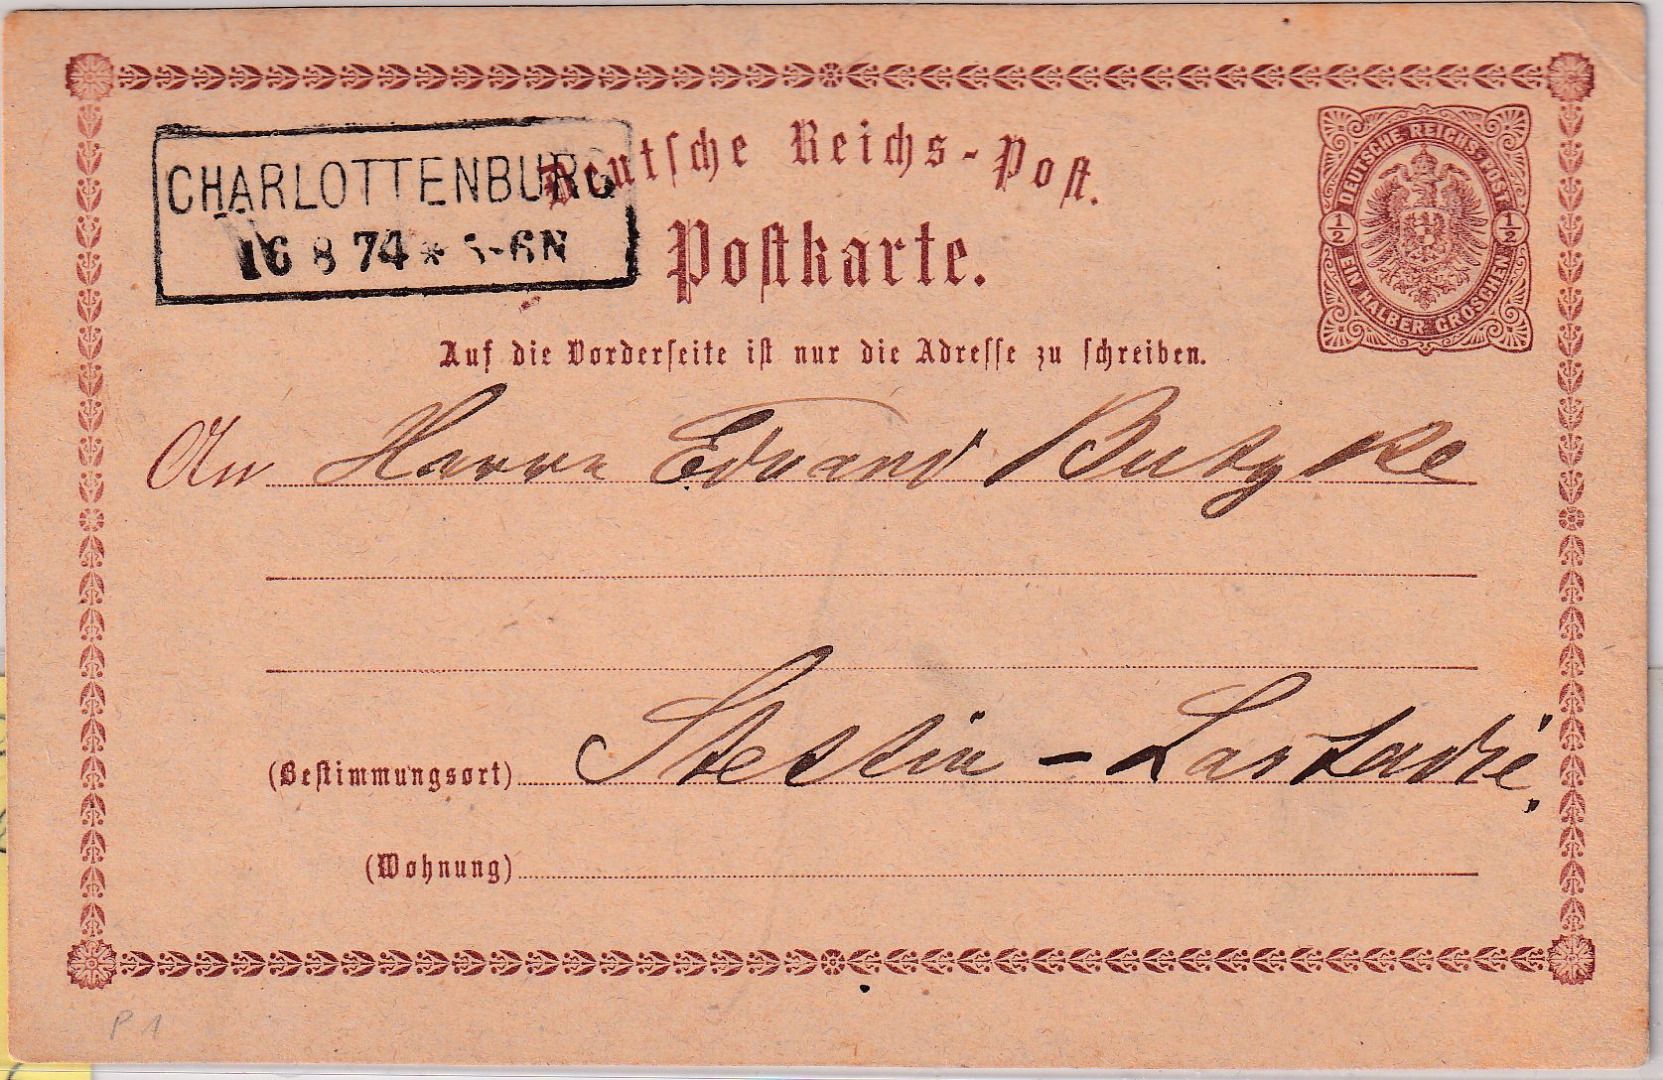 Deutsche Reichs-Post.
CHARLOTTENBURG
16 8 74 * 5-6N
Postkarte.
DEUTSCHE REICHS-POST
1/2 1/2
EIN HALBER GROSCHEN
Auf die Vorderseite ist nur die Adresse zu schreiben.
An Herrn Eduard Butzke
(Bestimmungsort) Stettin - Lastadie.
(Wohnung)
P 1